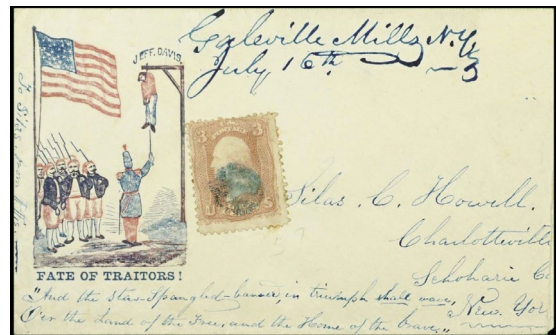 Galeville Mills N.Y.
July 16th
JEFF. DAVIS.
3 U.S. POSTAGE 3
U S
Silas C. Howell.
Charlotteville
Schoharie C
New Yor
FATE OF TRAITORS!
"And the Star-Spangled-banner, in triumph shall wave,
O'er the Land of the Free, and the Home of the brave,"
To Silas from